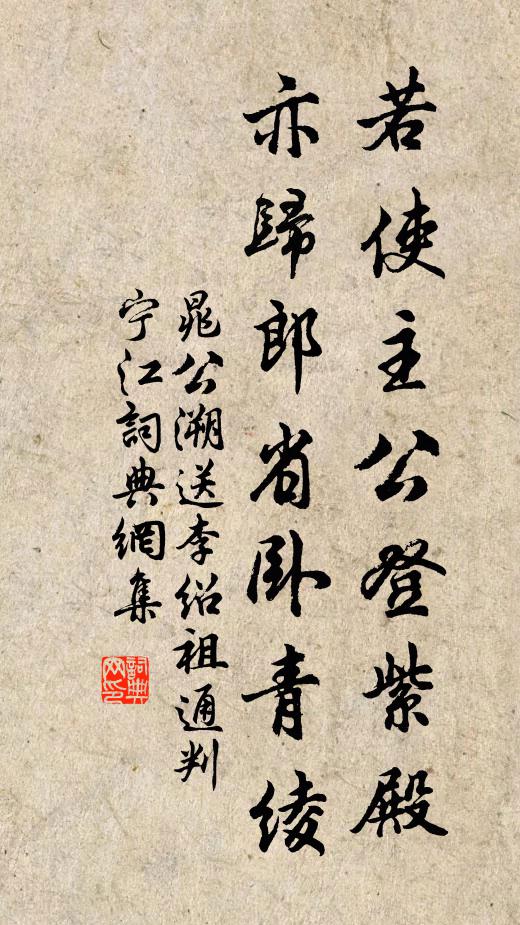 若使主公登紫殿
亦歸郎省卧青綾
晁公溯送李绍祖通判
宁江詞典網集
詞典
网印